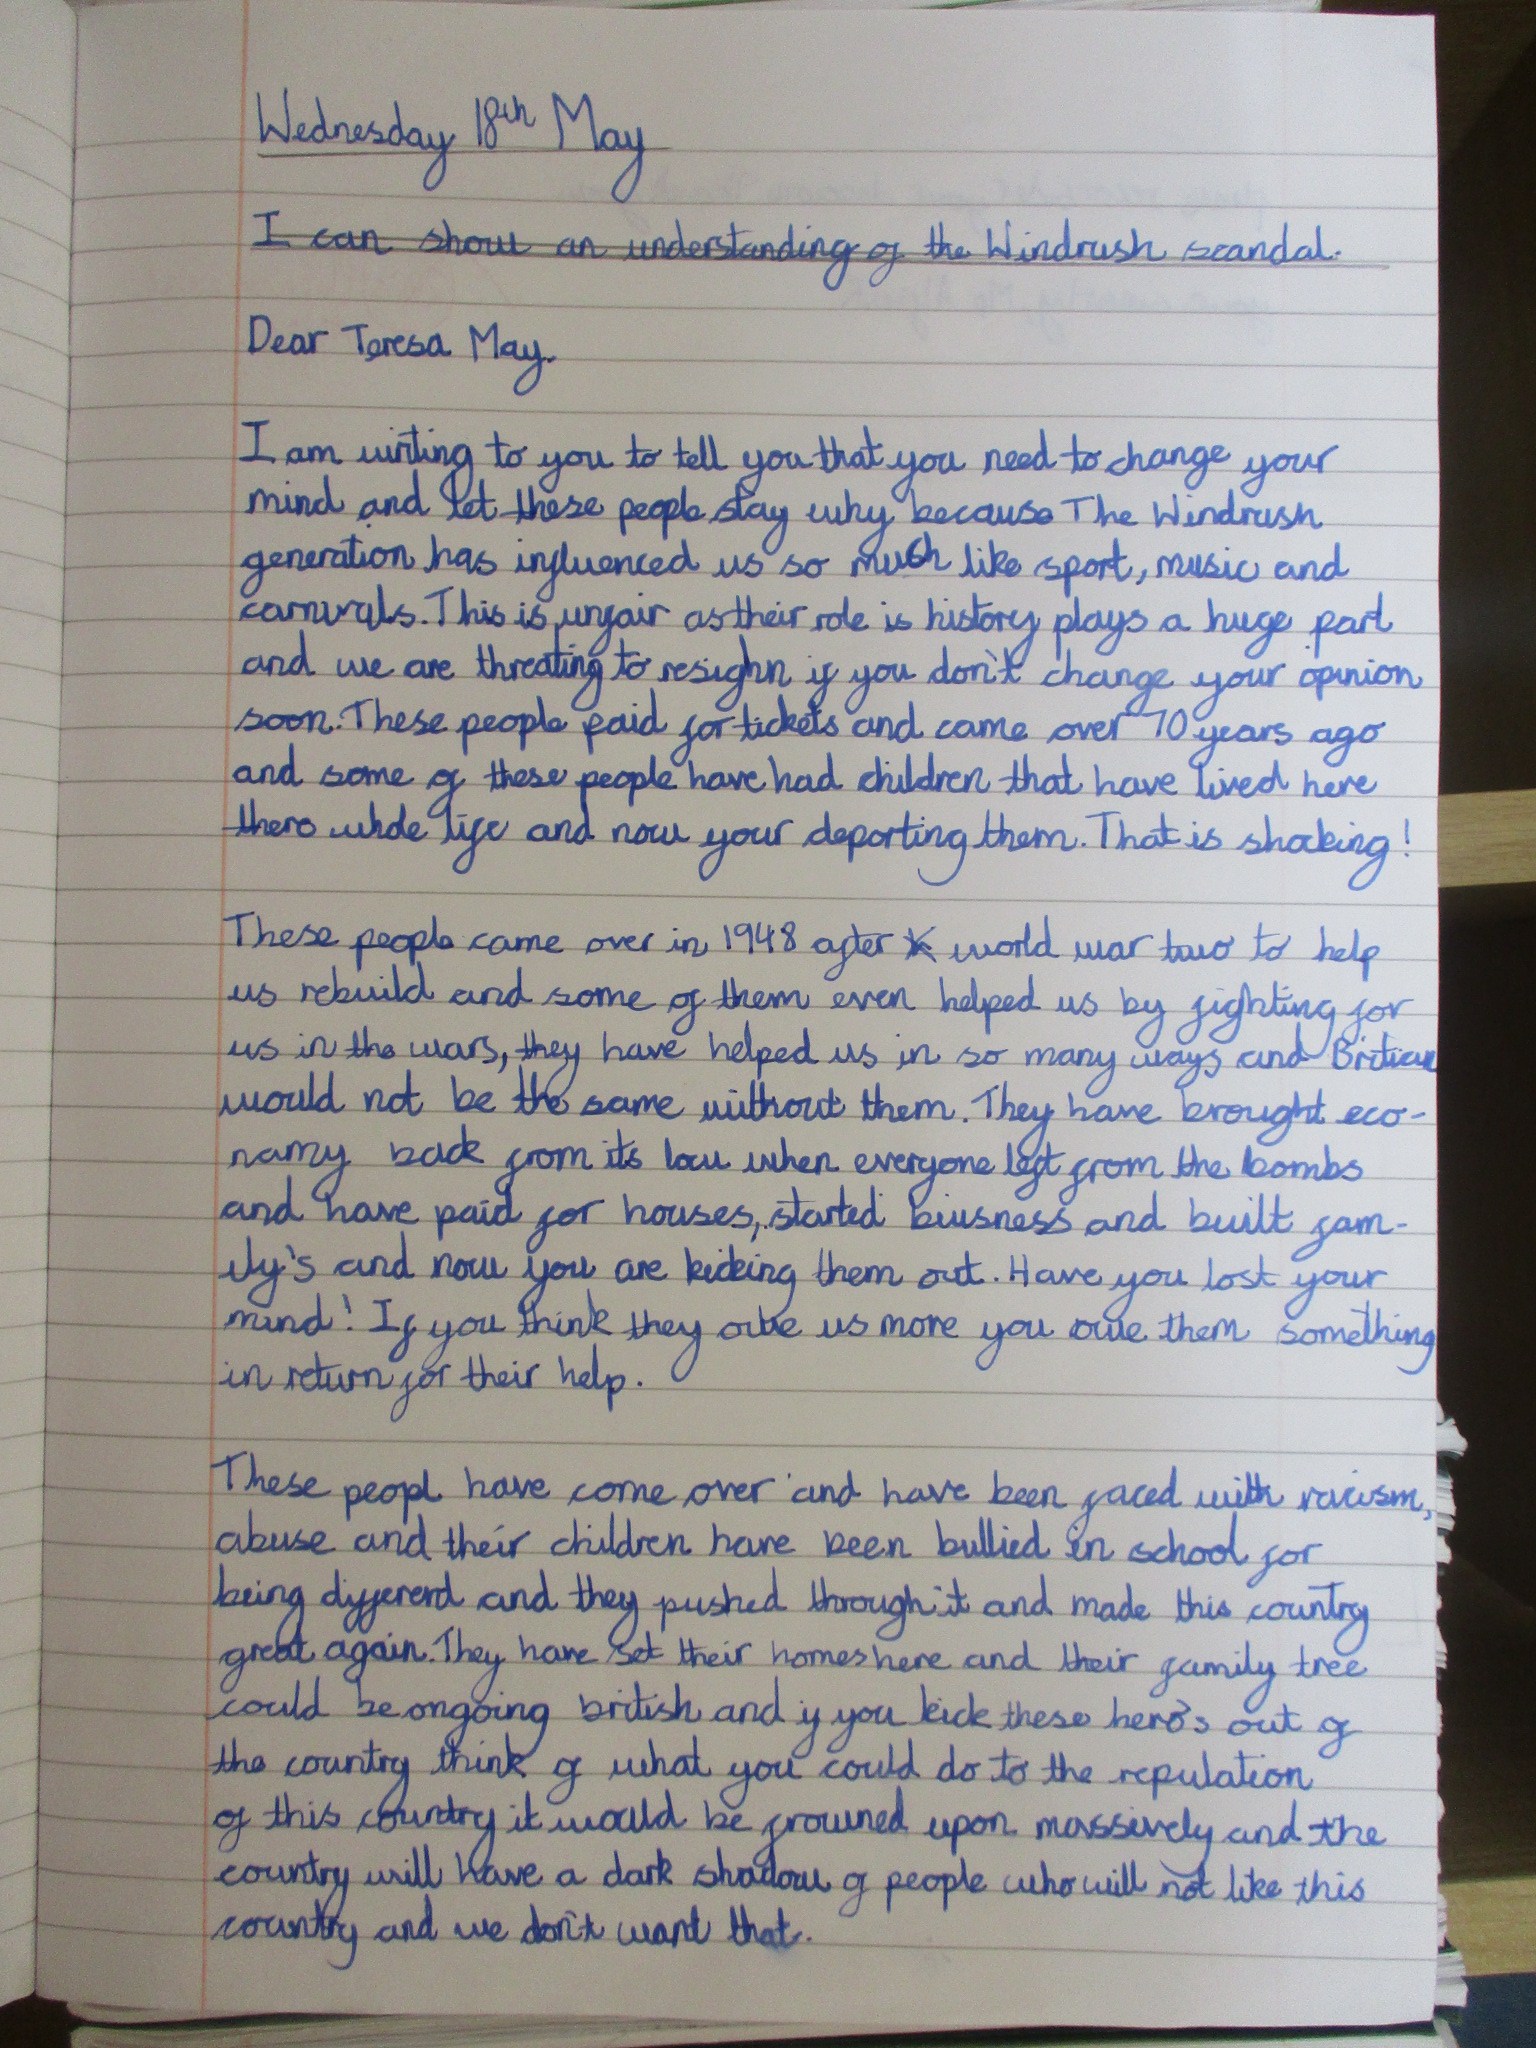 Wednesday 18th May
I can show an understanding of the Windrush scandal.
Dear Teresa May.
I am wirting to you to tell you that you need to change your
mind and let these people stay why because The Windrush
generation has influenced us so much like sport, music and
carnivals. This is unfair as their role is history plays a huge part
and we are threating to resighn if you don't change your opinion
soon. These people paid for tickets and came over 70 years ago
and some of these people have had children that have lived here
there whole life and now your deporting them. That is shocking!
These people came over in 1948 after world war two to help
us rebuild and some of them even helped us by fighting for
us in the wars, they have helped us in so many ways and
would not be the same without them. They have brought eco-
namy back from its low when everyone left from the bombs
and have paid for houses, started biusness and built fam-
ily's and now you are kicking them out. Have you lost your
mind! If you think they owe us more you owe them something
in return for their help.
These peopl have come over and have been faced with racism,
abuse and their children have been bullied in school for
being differend and they pushed through it and made this country
great again. They have set their homes here and their family tree
could be ongoing british and if you kick these hero's out of
the country think of what you could do to the repulation
of this country it would be frowned upon massively and the
country will have a dark shadow of people who will not like this
country and we don't want that.